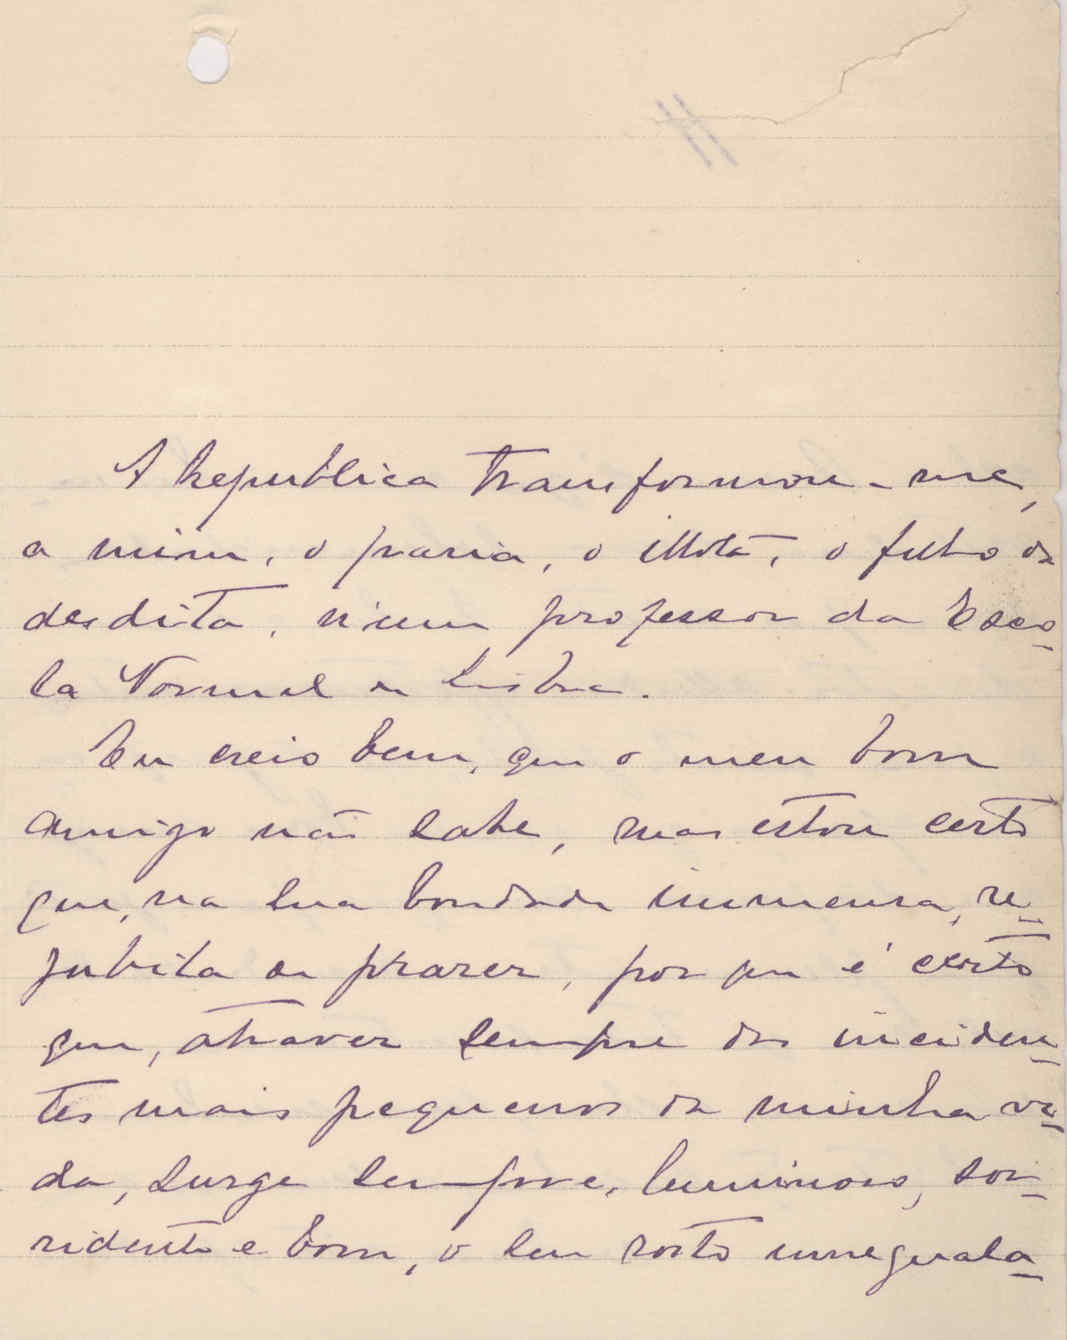 A Republica transformou-me,
a mim, o paria, o illota, o filho da
desdita, n'um professor da Esco-
la Normal de Lisboa.
Eu creio bem, que o meu bom
amigo não sabe, mas estou certo
que, na sua bondade immensa, re-
jubila de prazer, por que é certo
que, atravez sempre dos inciden-
tes mais pequenos da minha vi-
da, surge sempre, luminoso, sor-
ridente e bom, o seu rosto inneguala-